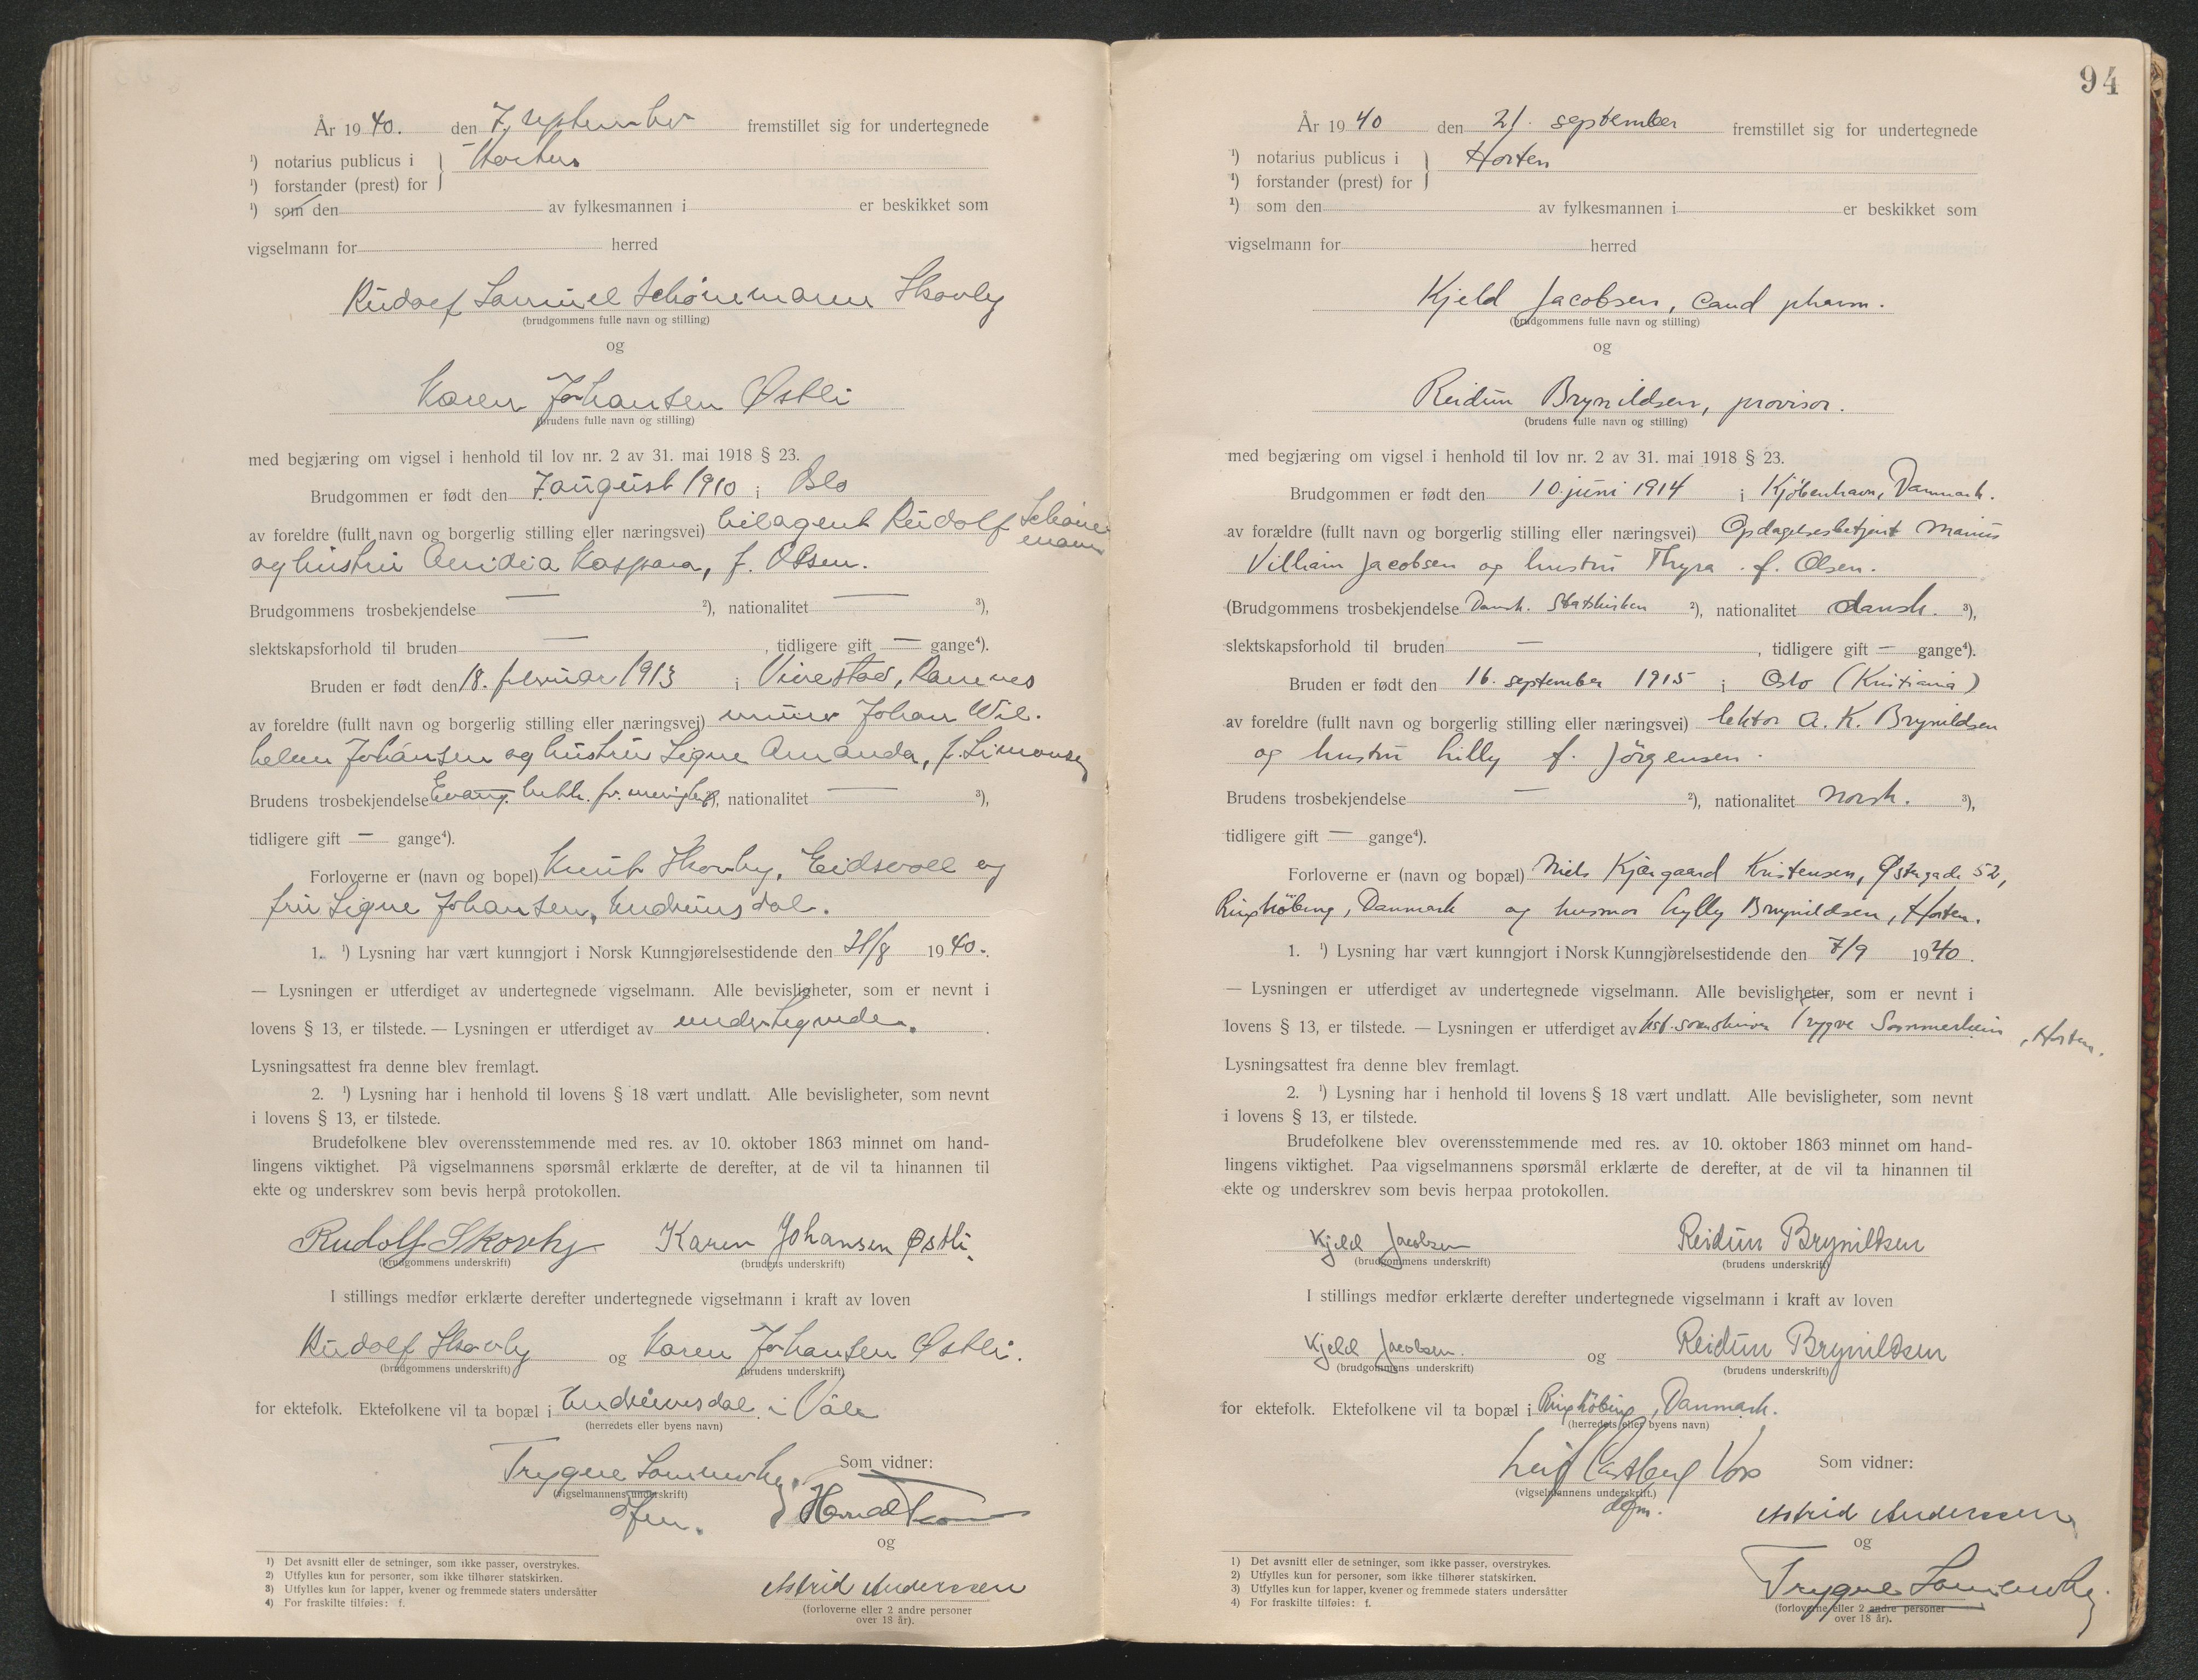 År 1940. den 7. september fremstillet sig for undertegnede
¹) notarius publicus i } Horten
¹) forstander (prest) for
¹) som den av fylkesmannen i er beskikket som
vigselmann for herred
Rudolf Samuel Schönemann Skovly
(brudgommens fulle navn og stilling)
og
Karen Johansen Østli
(brudens fulle navn og stilling)
med begjæring om vigsel i henhold til lov nr. 2 av 31. mai 1918 § 23.
Brudgommen er født den 7. august 1910 i Oslo
av foreldre (fullt navn og borgerlig stilling eller næringsvei) bilagent Rudolf Schöne-
mann
og hustru Kaspara, f. Olsen.
Brudgommens trosbekjendelse — ²), nationalitet — ³),
slektskapsforhold til bruden — , tidligere gift — gange⁴).
Bruden er født den 18. februar 1913 i Vivestad, Ramnes
av foreldre (fullt navn og borgerlig stilling eller næringsvei) murer Johan Wil-
helm Johansen og hustru Signe Amanda, f. Simonsen
Brudens trosbekjendelse Evang. luth. fr. ²), nationalitet — ³),
tidligere gift — gange⁴).
Forloverne er (navn og bopel) Knut Skovly, Eidsvoll og
fru Signe Johansen, Undrumsdal.
1. ¹) Lysning har vært kunngjort i Norsk Kunngjørelsestidende den 21/8 1940.
— Lysningen er utferdiget av undertegnede vigselmann. Alle bevisligheter, som er nevnt i
lovens § 13, er tilstede. — Lysningen er utferdiget av undertegnede.
Lysningsattest fra denne blev fremlagt.
2. ¹) Lysning har i henhold til lovens § 18 vært undlatt. Alle bevisligheter, som nevnt
i lovens § 13, er tilstede.
Brudefolkene blev overensstemmende med res. av 10. oktober 1863 minnet om hand-
lingens viktighet. På vigselmannens spørsmål erklærte de derefter, at de vil ta hinannen til
ekte og underskrev som bevis herpå protokollen.
Rudolf Skovly Karen Johansen Østli.
(brudgommens underskrift) (brudens underskrift)
I stillings medfør erklærte derefter undertegnede vigselmann i kraft av loven
Rudolf Skovly og Karen Johansen Østli.
(brudgommens underskrift) (brudens underskrift)
for ektefolk. Ektefolkene vil ta bopæl i Undrumsdal i Våle
(herredets eller byens navn)
Trygve Som vidner:
(vigselmannens underskrift)
og
Astrid Anderssen
(forloverne eller 2 andre personer
over 18 år).
1) Det avsnitt eller de setninger, som ikke passer, overstrykes.
2) Utfylles kun for personer, som ikke tilhører statskirken.
3) Utfylles kun for lapper, kvener og fremmede staters undersåtter
4) For fraskilte tilføies: f.
94
År 1940 den 21. september fremstillet sig for undertegnede
¹) notarius publicus i } Horten
¹) forstander (prest) for
¹) som den av fylkesmannen i er beskikket som
vigselmann for herred
Kjeld Jacobsen, cand pharm.
(brudgommens fulle navn og stilling)
og
Reidun Brynildsen, provisor.
(brudens fulle navn og stilling)
med begjæring om vigsel i henhold til lov nr. 2 av 31. mai 1918 § 23.
Brudgommen er født den 10. juni 1914 i Kjöbenhavn, Danmark.
av forældre (fullt navn og borgerlig stilling eller næringsvei) Opdagelsesbetjent Marius
Villiam Jacobsen og hustru Thyra f. Olsen.
(Brudgommens trosbekjendelse Dansk. Statskirken ²), nationalitet dansk. ³),
slektskapsforhold til bruden — , tidligere gift — gange⁴).
Bruden er født den 16. september 1915 i Oslo (Kristiania)
av foreldre (fullt navn og borgerlig stilling eller næringsvei) lektor A. K. Brynildsen
og hustru Lilly f. Jörgensen.
Brudens trosbekjendelse — ²), nationalitet norsk. ³),
tidligere gift — gange⁴).
Forloverne er (navn og bopæl) Niels Kjærgaard Kristensen, Østergade 52,
Ringköbing, Danmark og husmor Lylly Brynildsen, Horten.
1. ¹) Lysning har vært kunngjort i Norsk Kunngjørelsestidende den 7/9 1940.
— Lysningen er utferdiget av undertegnede vigselmann. Alle bevisligheter, som er nevnt i
lovens § 13, er tilstede. — Lysningen er utferdiget av kst. sorenskriver Trygve , Horten.
Lysningsattest fra denne blev fremlagt.
2. ¹) Lysning har i henhold til lovens § 18 vært undlatt. Alle bevisligheter, som nevnt
i lovens § 13, er tilstede.
Brudefolkene blev overensstemmende med res. av 10. oktober 1863 minnet om hand-
lingens viktighet. Paa vigselmannens spørsmål erklærte de derefter, at de vil ta hinannen til
ekte og underskrev som bevis herpaa protokollen.
Kjeld Jacobsen Reidun Brynildsen
(brudgommens underskrift) (brudens underskrift)
I stillings medfør erklærte derefter undertegnede vigselmann i kraft av loven
Kjeld Jacobsen. og Reidun Brynildsen
(brudgommens underskrift) (brudens underskrift)
for ektefolk. Ektefolkene vil ta bopæl i Ringköbing, Danmark.
(herredets eller byens navn)
Leif Castberg Som vidner:
(vigselmannens underskrift.)
dfm.
Astrid Anderssen
og
Trygve
(forloverne eller 2 andre personer
over 18 år).
1) Det avsnitt eller de setninger, som ikke passer, overstrykes.
2) Utfylles kun for personer, som ikke tilhører statskirken.
3) Utfylles kun for lapper, kvener og fremmede staters undersåtter
4) For fraskilte tilføies: f.